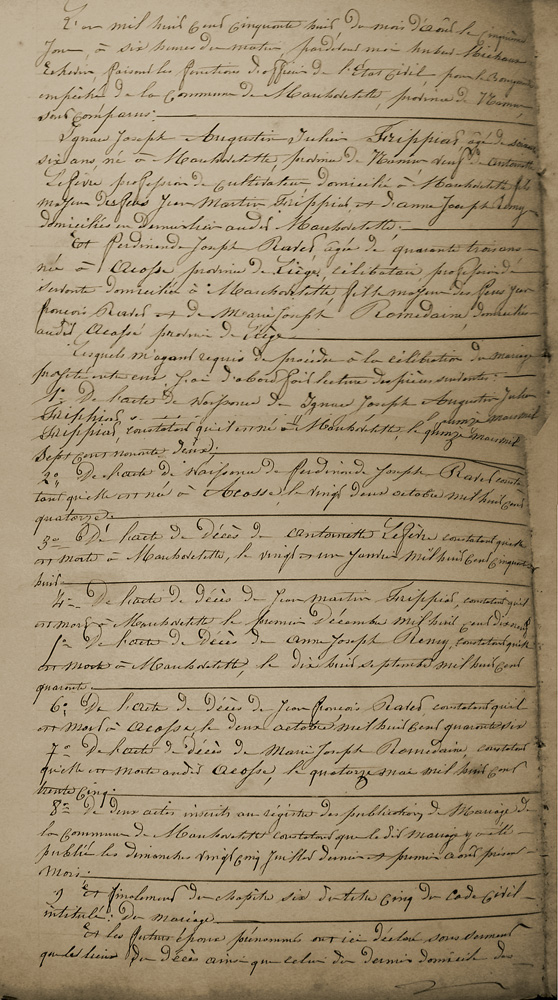 L'an mil huit cent cinquante huit du mois d'août le cinquième
Jour, à six heures du matin, pardevant moi hubert Michaux
Echevin, faisant les fonctions d'officier de l'Etat Civil, pour le Bourg
empêché de la commune de Mauhodelette, province de Namur
sont Comparus:
Ignace Joseph Augustin Julien Frippiat, agé de soixante
six ans né à Mauhodelette, province de Namur veuf de antoinette
Lefèvre profession de Cultivateur domicilié à Mauhodelette fils
majeur des feus Jean Martin Frippiat et d'anne Joseph Remy
domiciliés en dernier lieu audit Mauhodelette.
Et Ferdinande Joseph Ravet agée de quarante trois ans
née à Acosse province de Liège, célibataire profession de
servante domiciliée à Mauhodelette fille majeure des feus Jean
françois Ravet et de Marie Joseph Romedaine, domiciliés
audit Acosse province de Liège
Lesquels m'ayant requis de procéder à la célébration du mariage
projeté entre eux, j'ai d'abord fait lecture des pièces suivantes:
1° De l'acte de naissance de Ignace Joseph Augustin Julien
Frippiat,
Frippiat, constatant qu'il est né à Mauhodelette, le quinze mars mil
Sept cent nonante deux;
2° De l'acte de naissance de Ferdinande Joseph Ravet cons
tant qu'elle est née à Acosse, le vingt deux octobre mil huit cent
quatorze
3° De l'acte de décès de antoinette Lefèvre constatant qu'elle
est morte à Mauhodelette, le vingt et un Janvier Mil huit Cent Cinquante
huit
4° De l'acte de décès de Jean martin Frippiat, constatant qu'il
est mort à Mauhodelette le premier Décembre mil huit cent dix neuf
De l'acte de Décès de anne Joseph Remy, constatant qu'elle
est morte à Mauhodelette, le dix huit septembre mil huit cent
quarante
6° De l'acte de décès de Jean françois Ravet constatant qu'il
est mort à Acosse, le deux octobre mil huit cent quarante six
7° De l'acte de décès de Marie Joseph Romedaine, constatant
qu'elle est morte audit Acosse, le quatorze mai mil huit cent
trente Cinq.
8° de deux actes inscrits au registre des publications de Mariage de
la commune de Mauhodelette constatant que le dit mariage y a été
publié les dimanches vingt cinq Juillet dernier et premier août présent
mois.
9 Et finalement du chapitre six du titre cinq du code civil
intitulé: Du mariage
Et les futurs époux prénommés ont ici déclaré sous serment
que les lieux du Décès ainsi que celui du dernier domicile des